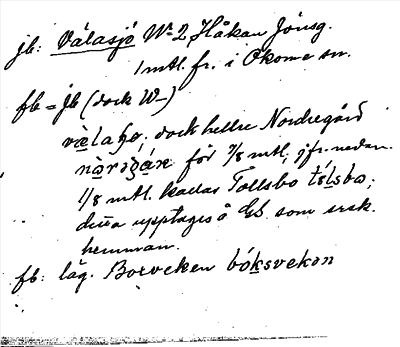 jb: Válasjö No 2 Håkan Jönsg.
1 mtl. fr. i Okome sn.
fb = jb (dock W-)
dock hellre Nordregård
för 7/8 mtl; jfr. nedan.
1/8 mtl. kallas Tållsbo tó́lsbo;
denna upptages å GS som srsk.
hemman.
fb: läg. Borveken bóksvekan